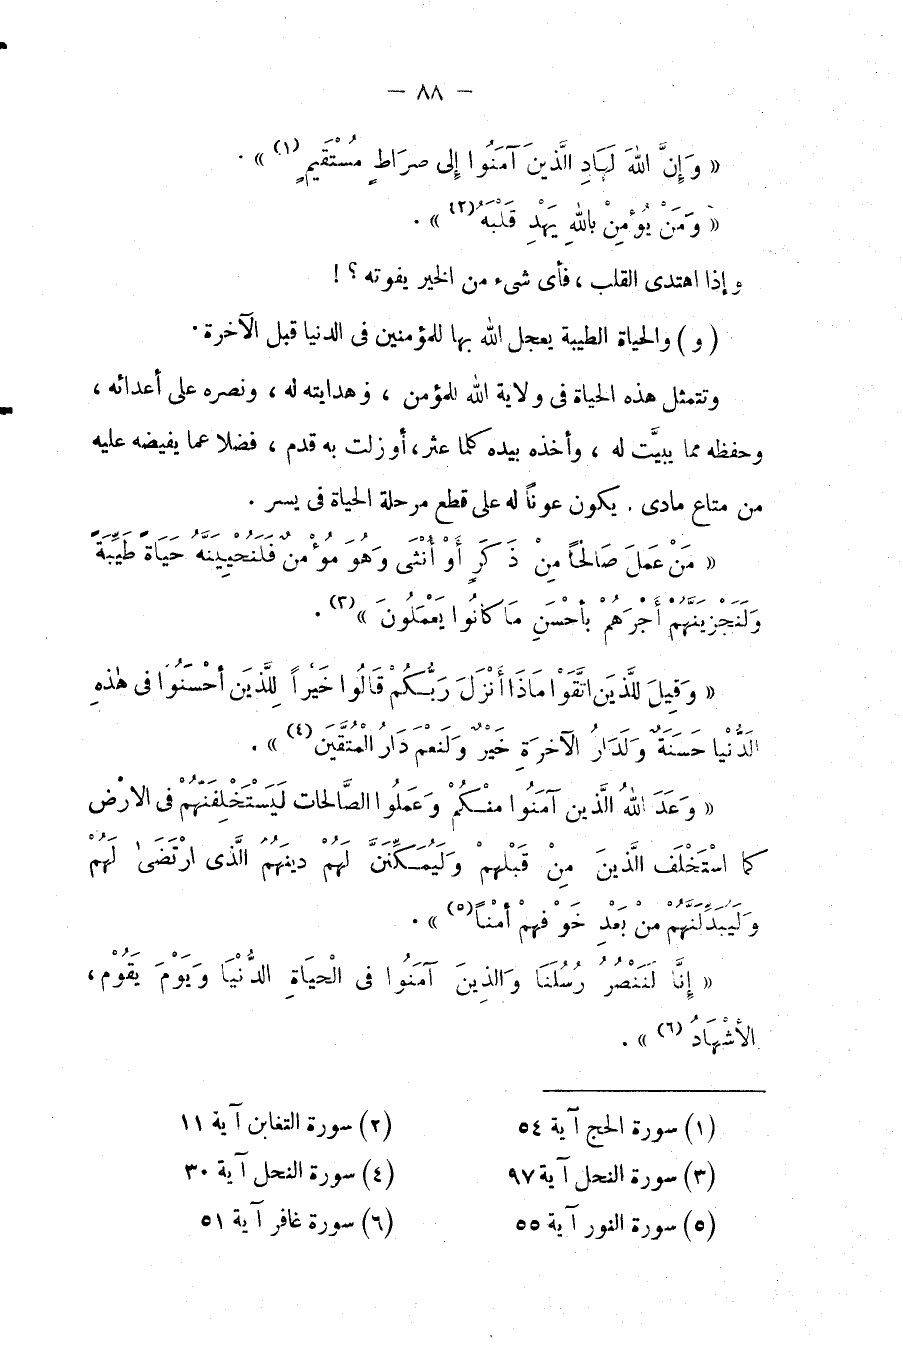 — ٨٨ —
« وَإِنَّ اللهَ لَهَادِ الَّذِينَ آمَنُوا إِلى صرَاطٍ مُسْتَقِيمٍ (١) » .
« وَمَنْ يُؤمِنْ باللهِ يَهْدِ قَلْبَهُ (٢) » .
وإذا اهتدى القلب ، فأى شىء من الخير يفوته ؟ !
( و ) والحياة الطيبة يعجل الله بها للمؤمنين فى الدنيا قبل الآخرة .
وتتمثل هذه الحياة فى ولاية الله للمؤمن ، وهدايته له ، ونصره على أعدائه ،
وحفظه مما يبيَّت له ، وأخذه بيده كلما عثر ، أو زلت به قدم ، فضلا عما يفيضه عليه
من متاع مادى . يكون عوناً له على قطع مرحلة الحياة فى يسر .
« مَنْ عَمَلَ صَالحًا مِنْ ذَكَرٍ أَوْ أُنْثَى وَهُوَ مُؤْمنٌ فَلَنُحيِيَنَّهُ حَيَاةً طَيِّبَةً
وَلَنَجْزِيَنَّهُمْ أَجْرَهُمْ بأَحْسَنِ مَا كَانُوا يَعْمَلُونَ »(٣) .
« وَقِيلَ للَّذيَن اتَّقَوْا مَاذَا أَنْزَلَ رَبُّكُمْ قَالُوا خَيْراً لِلَّذِيَن أَحْسَنُوا فى هٰذهِ
الدُّنْيا حَسَنَةٌ وَلَدَارُ الآخرَةِ خَيْرٌ وَلَنعْمَ دَارُ المُتَّقَين (٤) » .
« وَعَدَ اللهُ الَّذين آمَنُوا منْكُمْ وَعَملُوا الصَّالحات لَيَسْتَخْلفَنَّهُمْ فى الأرْض
كما اسْتَخْلَف الَّذينَ مِنْ قَبْلهمْ وَلَيُمَكِّنَنَّ لَهُمْ دينَهُمُ الَّذى ارْتَضَىٰ لَهُمْ
وَلَيُبَدِّلَنَّهُمْ منْ بَعْدِ خَوْفهمْ أَمْناً (٥) » .
« إِنَّا لَنَنْصُرُ رُسُلَنَا وَالذِينَ آمَنُوا فى الْحَيَاةِ الدُّنْيَا وَيَوْمَ يَقُوْم ،
الأَشْهَادُ (٦) » .
(١) سورة الحج آية ٥٤ (٢) سورة التغابن آية ١١
(٣) سورة النحل آية ٩٧ (٤) سورة النحل آية ٣٠
(٥) سورة النور آية ٥٥ (٦) سورة غافر آية ٥١